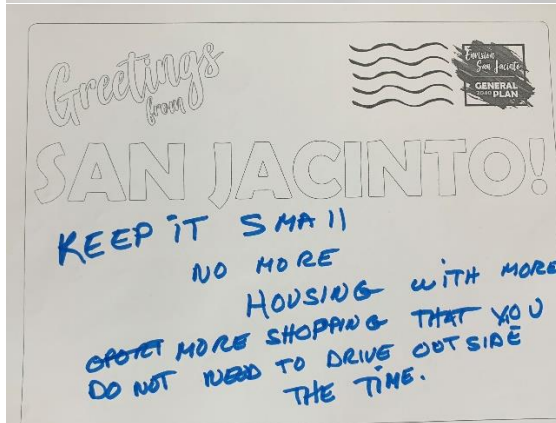 Greetings
from
Envision
San Jacinto
GENERAL
2040 PLAN
SAN JACINTO!
KEEP iT SMAll
NO MORE
HOUSING WITH MORE
MORE SHOPPING THAT YOU
DO NOT NEED TO DRIVE OUTSIDE
THE TIME.